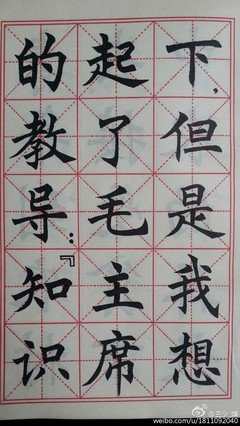 下，但是我想
起了毛主席
的教导：『知识
weibo.com/u/1811092040